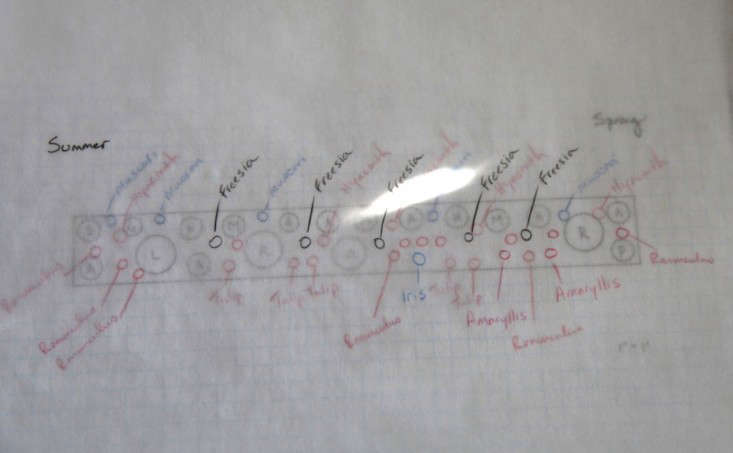 Spring
Summer
Muscari
Hyacinth
Muscari
Freesia
Muscari
Freesia
Hyacinth
Freesia
Hyacinth
Muscari
Freesia
Hyacinth
Freesia
Muscari
Hyacinth
L
R
R
A
A
M
Ranunculus
Ranunculus
Ranunculus
Tulip
Tulip
Tulip
Ranunculus
Iris
Tulip
Tulip
Amaryllis
Ranunculus
Amaryllis
Ranunculus